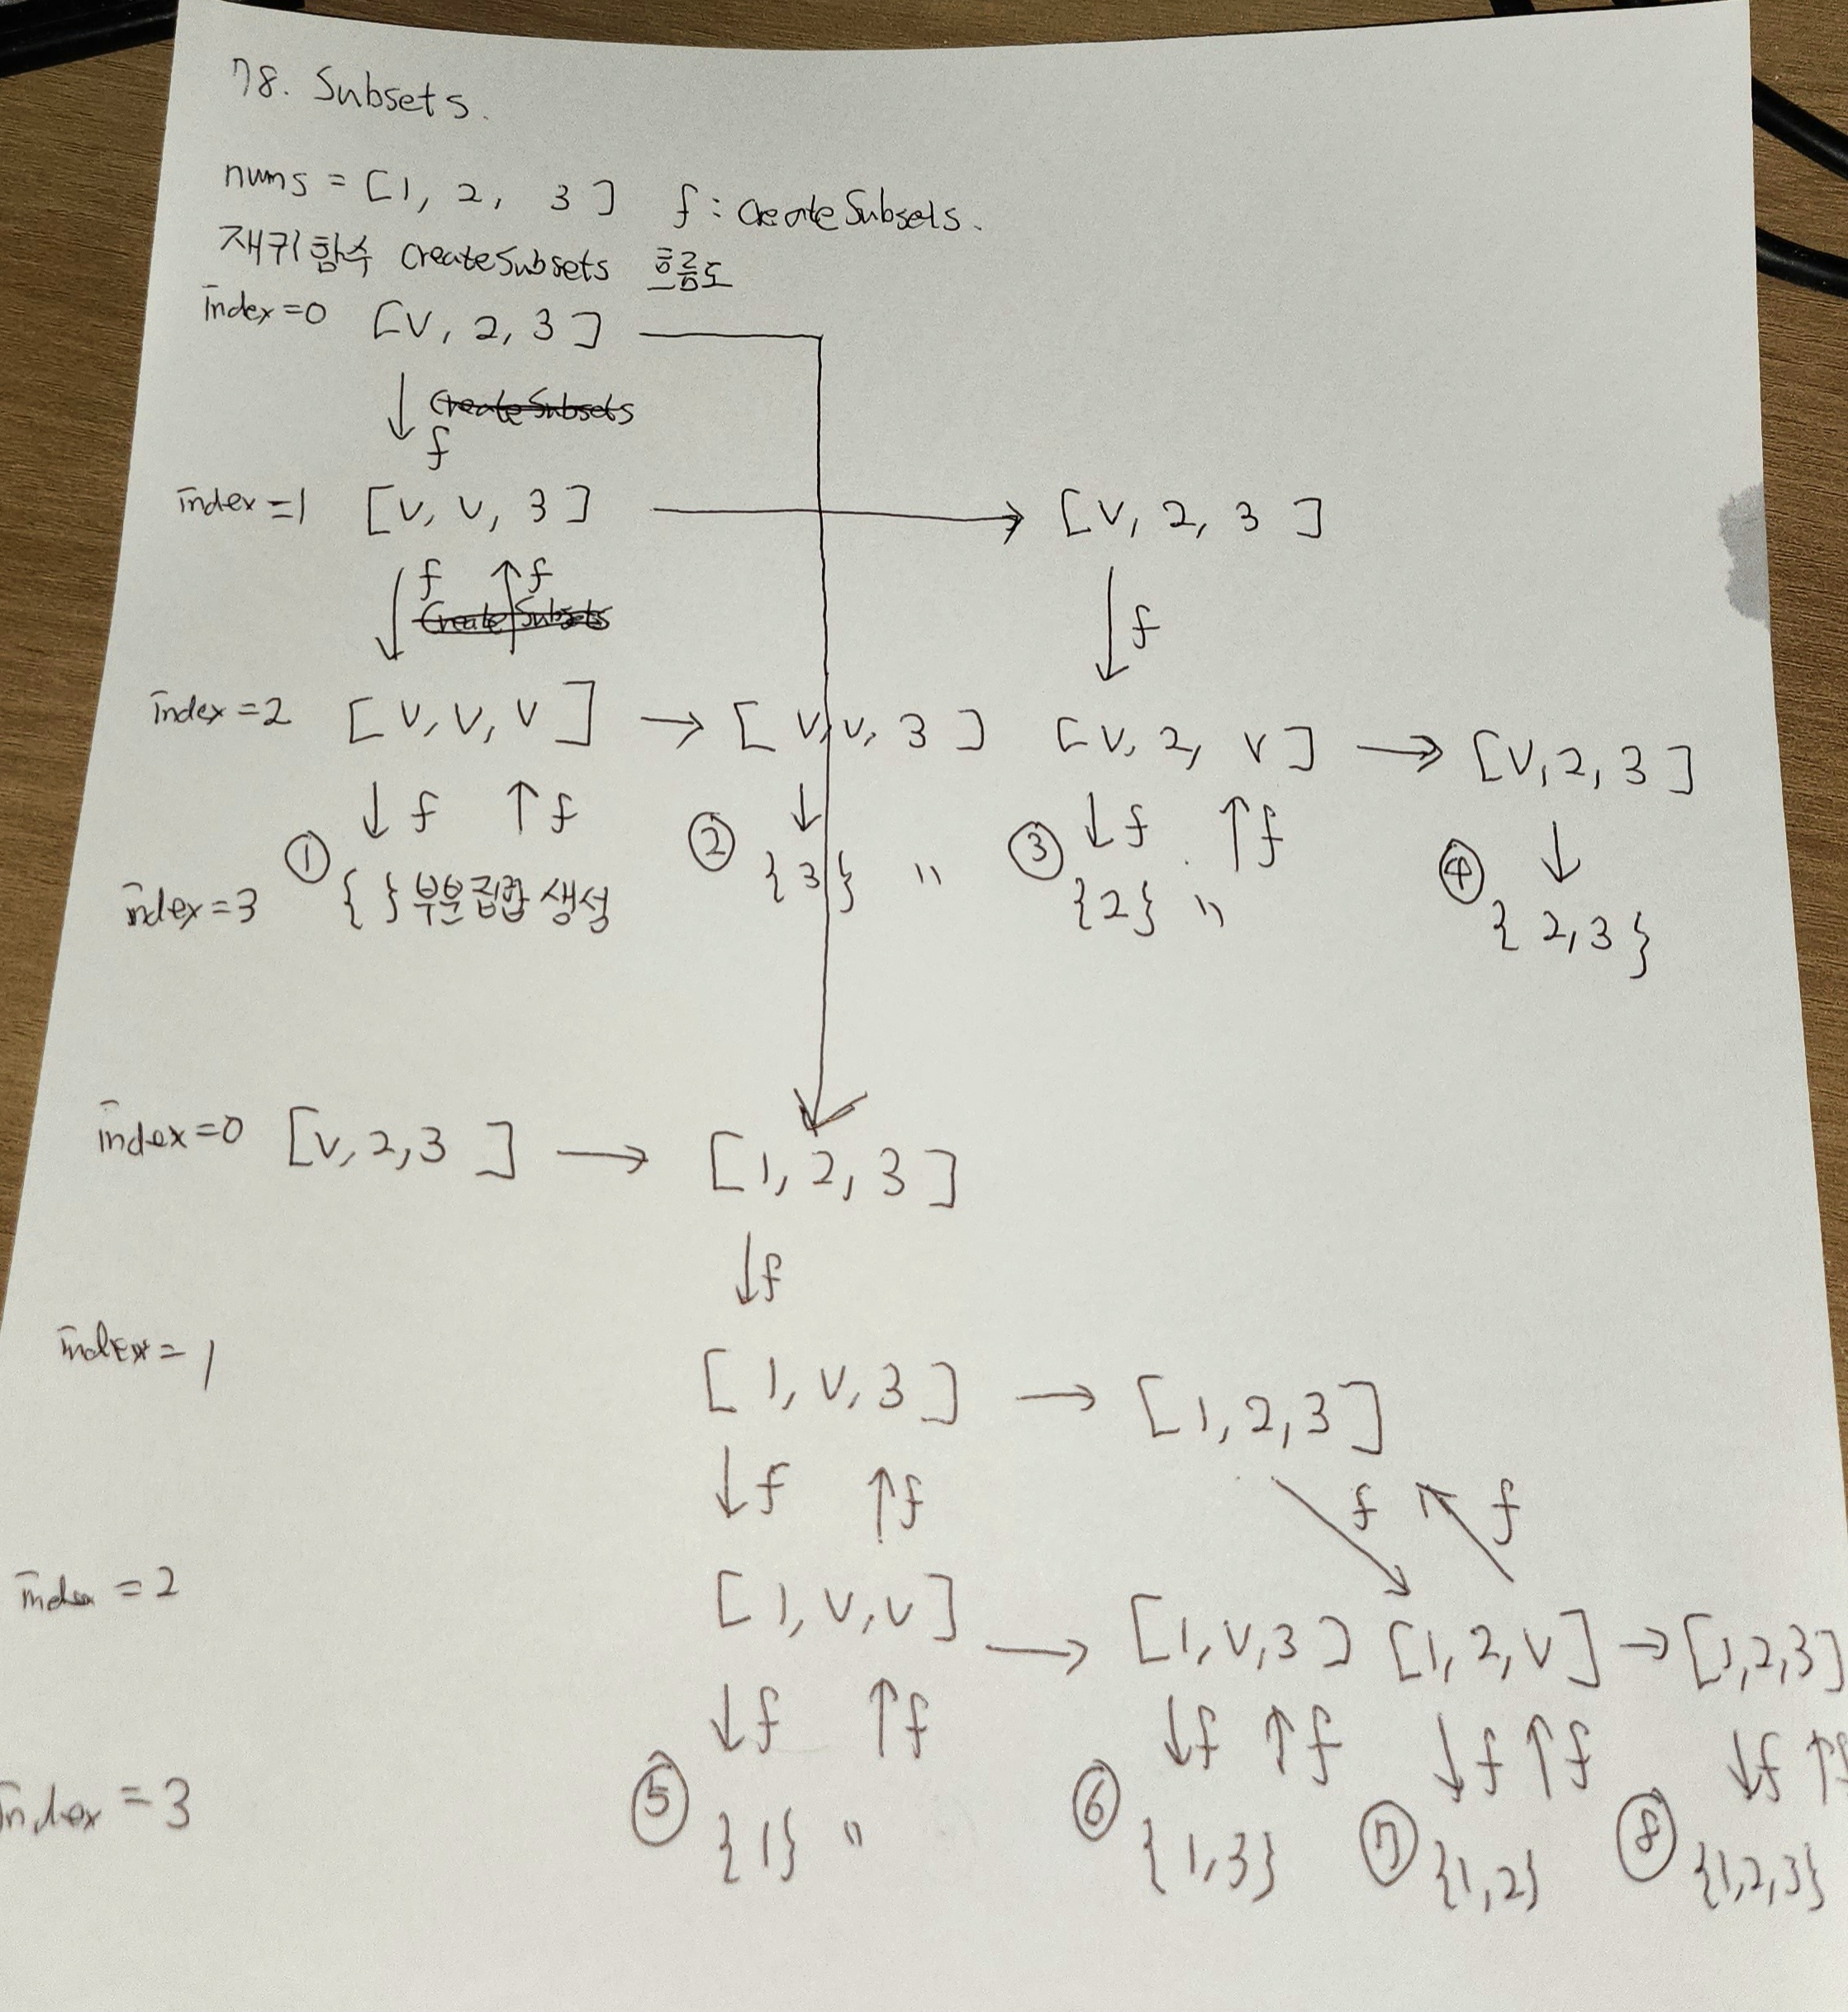 78. Subsets.
nums = [1, 2, 3] f : CreateSubsets.
재귀함수 CreateSubsets 흐름도
index=0 [V, 2, 3]
↓ CreateSubsets
f
index=1 [V, V, 3] → [V, 2, 3]
↓ f ↑ f ↓ f
CreateSubsets
index=2 [V, V, V] → [V, V, 3] [V, 2, V] → [V, 2, 3]
↓ f ↑ f ↓ ↓ f ↑ f ↓
index=3 ① { } 부분집합 생성 ② {3} " ③ {2} " ④ {2,3}
index=0 [V, 2, 3] → [1, 2, 3]
↓ f
index=1 [1, V, 3] → [1, 2, 3]
↓ f ↑ f f f
index=2 [1, V, V] → [1, V, 3] [1, 2, V] → [1, 2, 3]
↓ f ↑ f ↓ f ↑ f ↓ f ↑ f ↓ f ↑ f
index=3 ⑤ {1} " ⑥ {1,3} ⑦ {1,2} ⑧ {1,2,3}